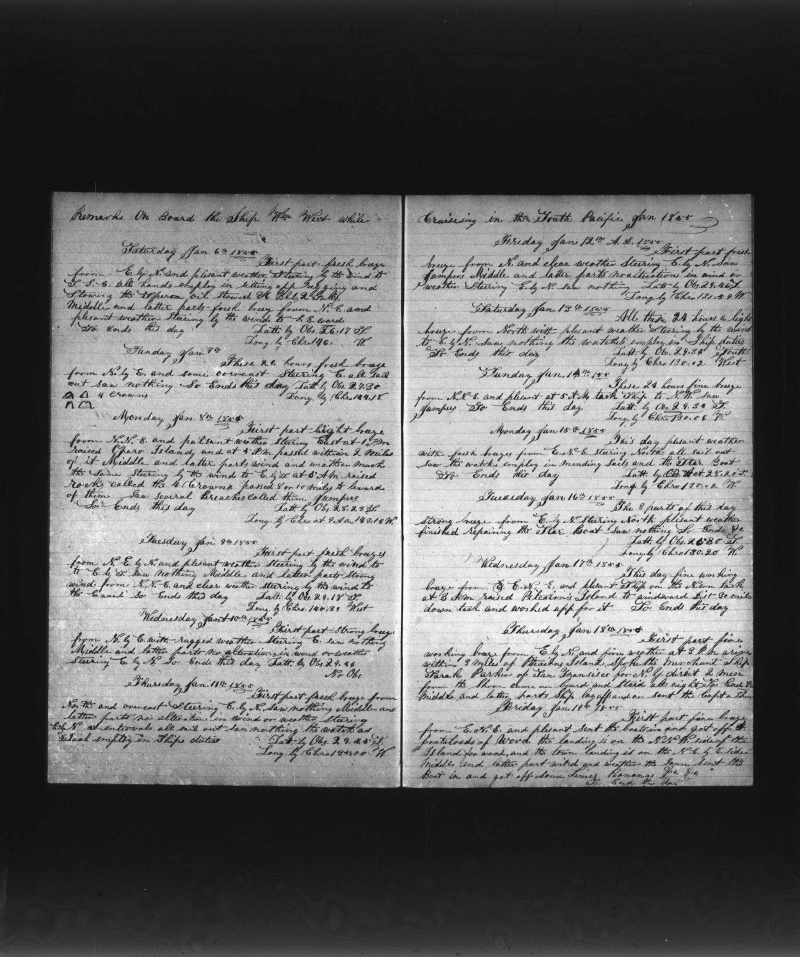 Remarks On Board the Ship Wm West while
Saturday Jan 6th 1855
First part fresh breze
from E. by N. and plesant weather Steering by the wind to
S. S. E. all hands employ in setting app Rigging and
Stowing the
Middle and latter parts fresh breze from N. E and
plesant weather Steering by the wind to S. E ward
So Ends this day Latt by Obs 26.17 S.
Long by Chro W
Sunday Jan 7th
These 24 hours fresh breze
from N. by E. and some overcast Steering E. all Sail
out Saw nothing So Ends this day Latt by Obs 27.30
4 crows Long by Chro
Monday Jan 8th 1855
First part light breze
from N. N. E. and pleasant weather Steering East at 1 P.M
raised Oparo Island, and at 5 P.M. passed within 2 Miles
of it Middle and latter parts wind and weather much
the Same Steering by the wind to E. by S. at 5 A.M raised
rocks called the 4 Crowns passed 8 or 10 miles to leward
of them Saw several Breaches called them Jampers
So Ends this day Latt by Obs 28.23 S.
Long by Chro at 9 W
Tuesday Jan 9th 1855
First part fresh brezes
from N. E. by N. and plesant weather Steering by the wind to
to E. by S. Saw nothing Middle and latter parts Strong
wind from N. N. E. and clear wether Steering by the wind to
the Eward So Ends this day Latt by Obs 29.18 S.
Long by Chro 139.39 West
Wednesday Jan 10th 1855
First part Strong breze
from N. by E. with rugged weather Steering E. saw nothing
Middle and latter parts no alterations in wind or weather
Steering E. by N. So Ends this day Latt by Obs 29.46
No Obs
Thursday Jan 11th 1855
First part fresh breze from
North and overcast Steering E. by N. saw nothing Middle and
latter parts no alteration in wind or weather Steering
E. by N. at intervals all sail out saw nothing the watch as
usual employ in Ships duties Latt by Obs 29.48 S.
Long by Chro W
Cruising in the South Pacific Jan 1855
Friday Jan 12th A.D. 1855
First part fresh
breze from N. and clear weather Steering E. by N. Saw
Jampers Middle and latter parts no alterations in wind or
weather Steering E. by N. saw nothing Latt by Obs 29.46 S.
Long by Chro 131.59 W
Saturday Jan 13th 1855
All these 24 hours a light
breze from North with plesant weather Steering by the wind
to E. by N. Saw nothing the watches employ in Ship duties
So Ends this day Latt by Obs 29.34 South
Long by Chro 130.02 West
Sunday Jan 14th 1855
These 24 hours fine breze
from N. N. E. and plesant at 5 A.M. tack Ship to N. W. saw
Jampers So Ends this day Latt by Obs 28.55 S.
Long by Chro 130.06 W.
Monday Jan 15th 1855
This day plesant weather
with fresh brezes from E. N. E. stering North all sail out
Saw the watch employ in mending Sails and the Star Boat
So Ends this day Latt by Obs at 28.20 S.
Long by Chro 130.08 W
Tuesday Jan 16th 1855
The 3 parts of this day
strong breze from E. by N. Stering North plesant weather
finished repairing the Star Boat saw nothing So Ends &c
Latt by Obs 25.80 S.
Long by Chro 130.20 W
Wednesday Jan 17th 1855
This day fine working
breze from E. N. E. and plesant Ship on the N.wn tack
at 3 A.M raised Pitcairns Island to windward Dist 30 miles
down tack and worked app for it So Ends this day
Thursday Jan 18th 1855
First part fine
working breze from E. by N. and fine weather at 3 P.M. arived
within 3 Miles of Pitcairns Island, spoke the merchant Ship
Sarah Parker of San Francisco for N. Y. direct 2 men
from the Shore on board, and staid all night So Ends &c
Middle and latter parts Ship lay off and on sent the Capt a Shore
Friday Jan 19th 1855
First part fine breze
from E. N. E. and plesant Sent the boats in and got off
boatloads of Wood the landing is on the N. N. W. side of the
Island for wood, and the town landing is on the N. E. by E. side
Middle and latter part wind and weather the Same Sent the
Boat in and got off some Limes Bananas &c &c
So Ends this day